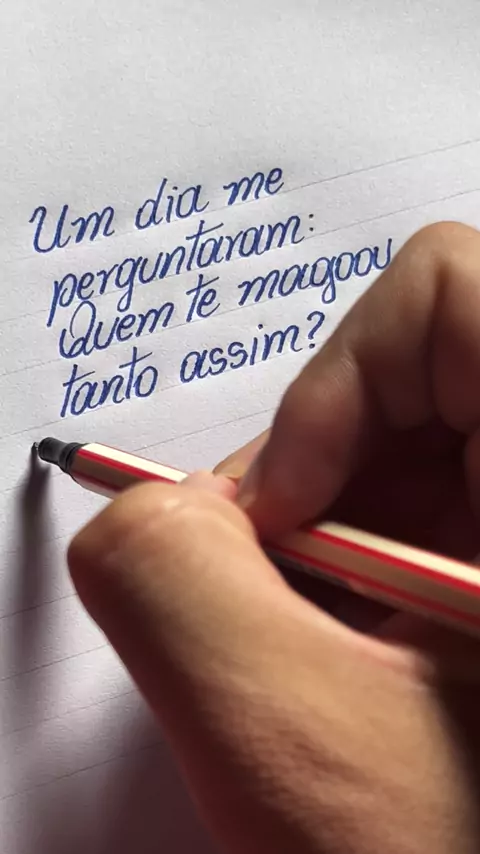 Um dia me
perguntaram:
Quem te magoou
tanto assim?